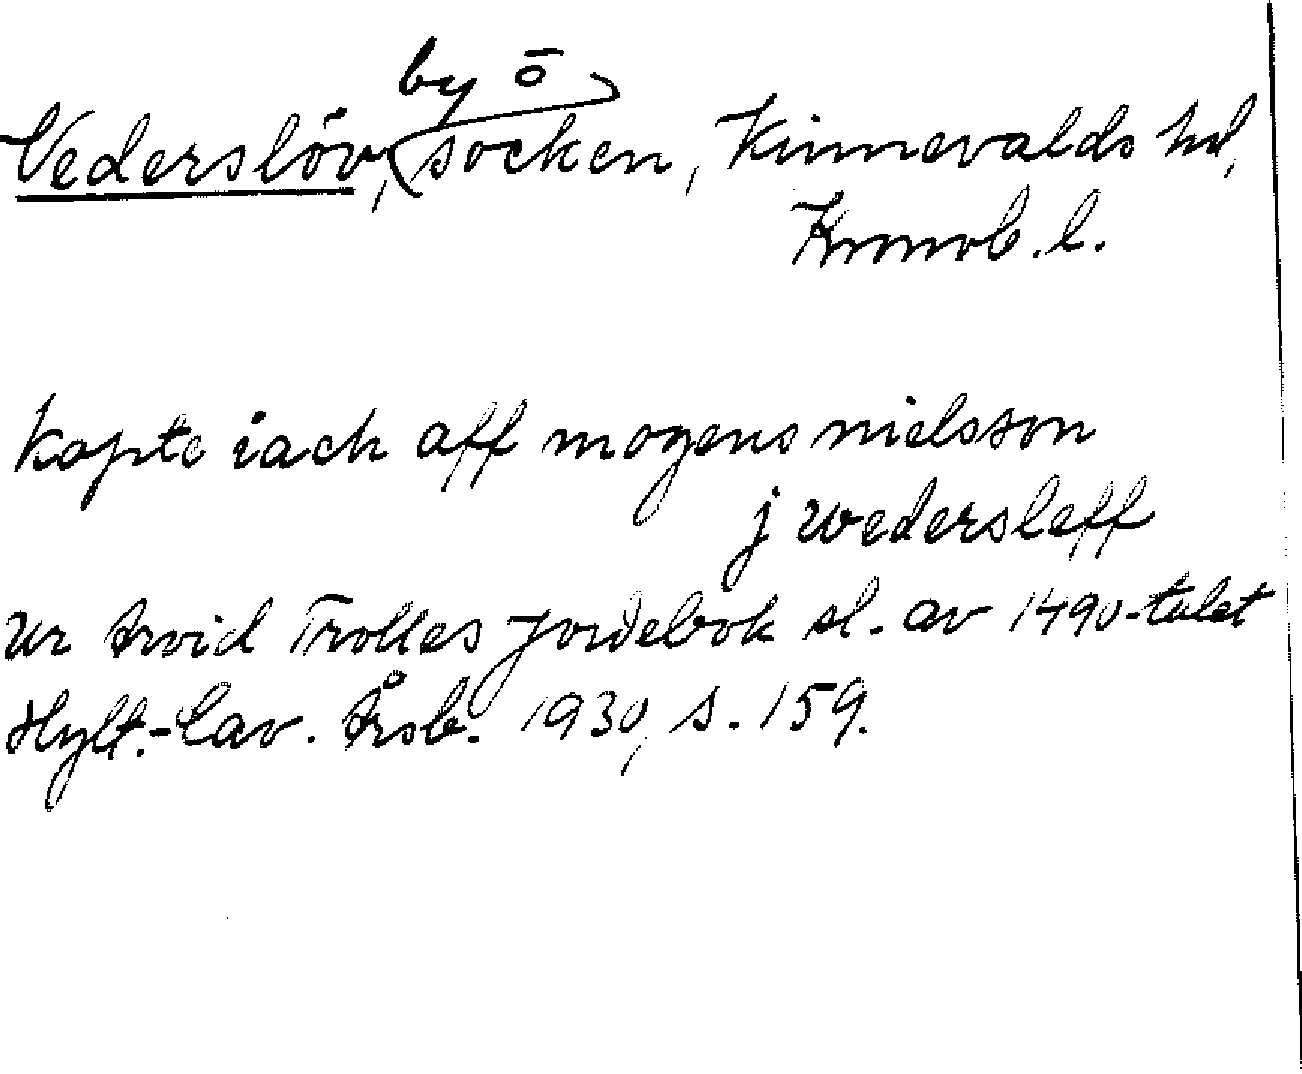 by ō
Vederslöv, socken, Kinnevalds hd,
Kronob. l.
Kopte iach aff mogens nielsson
j wedersleff
Ur Arvid Trolles Jordebok sl. av 1490-talet
Hylt.-Cav. Årsb. 1930, s. 159.